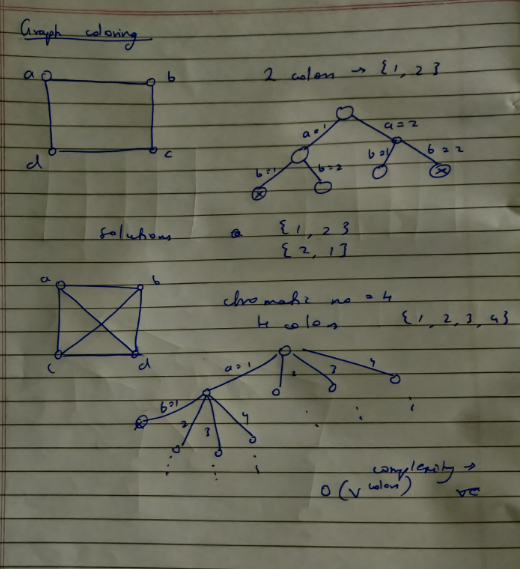 Graph coloring
a b
2 colors → {1, 2}
d c
a=1 a=2
b=1 b=2 b=1 b=2
x x
solutions {1, 2}
{2, 1}
a b
chromatic no = 4
4 colors {1, 2, 3, 4}
c d
a=1 2 3 4
b=1 2 3 4
x
complexity →
O(V^colors)